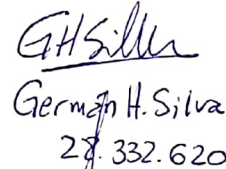 GHSilva
Germán H. Silva
28.332.620